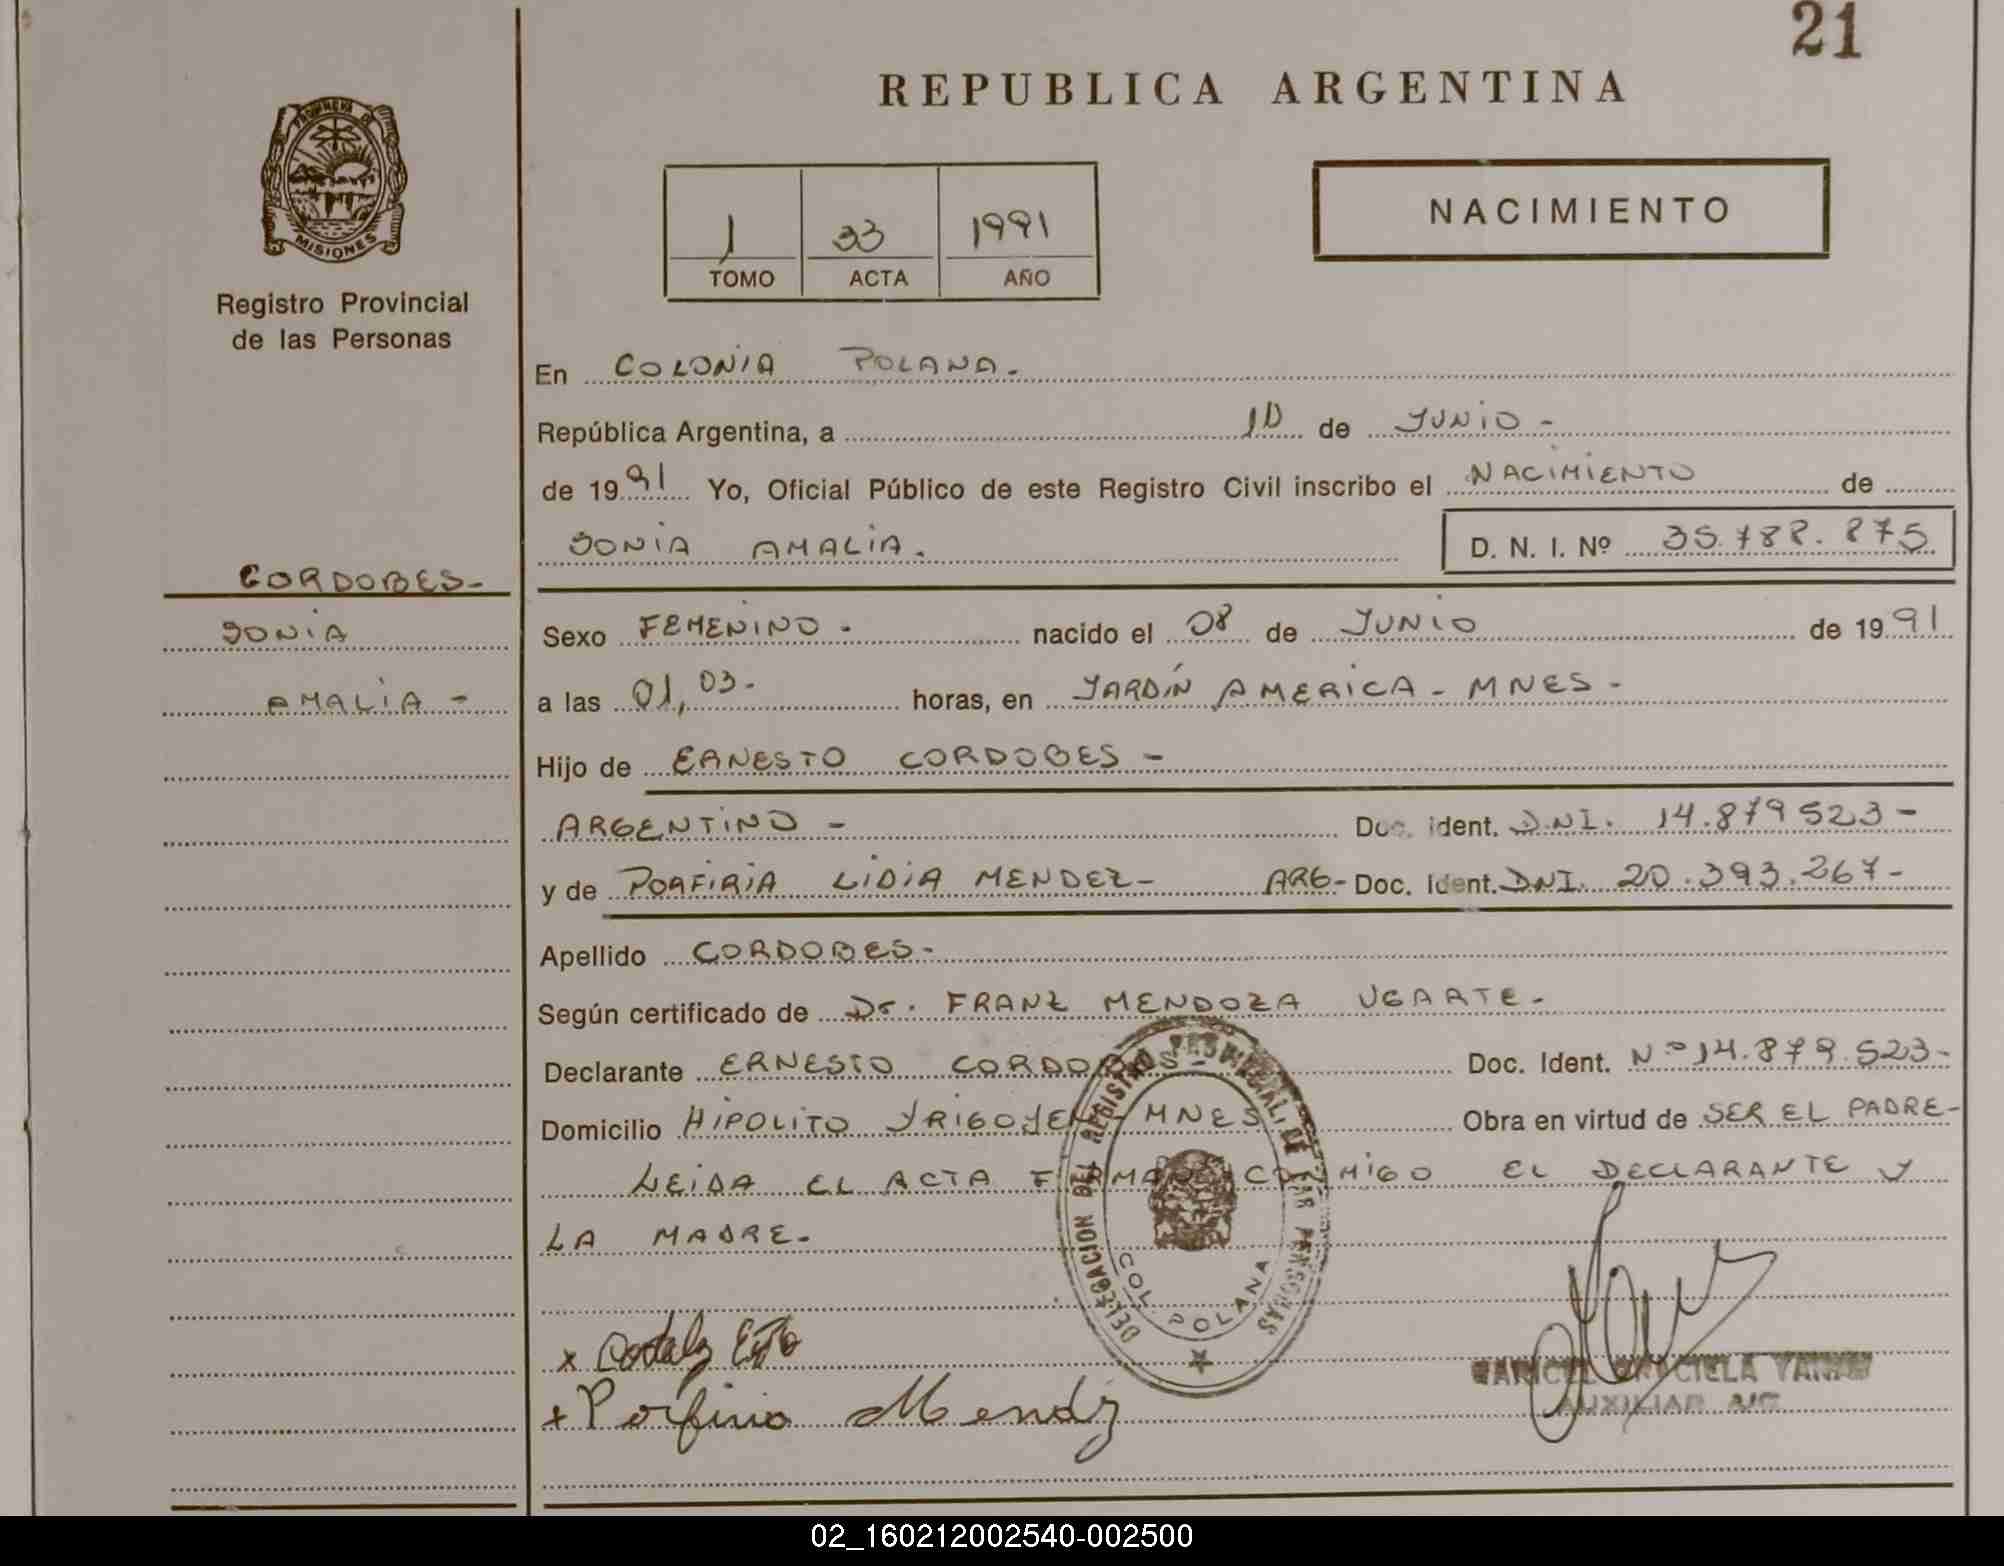 21
REPUBLICA ARGENTINA
PROVINCIA DE
MISIONES
Registro Provincial
de las Personas
1 33 1991
TOMO ACTA AÑO
NACIMIENTO
En COLONIA POLANA.
República Argentina, a 10 de JUNIO -
de 1991 Yo, Oficial Público de este Registro Civil inscribo el NACIMIENTO de
SONIA AMALIA. D. N. I. Nº 35.788.875
CORDOBES-
SONIA
AMALIA -
Sexo FEMENINO - nacido el 08 de JUNIO de 1991
a las 01,03- horas, en JARDÍN AMERICA - MNES -
Hijo de ERNESTO CORDOBES -
ARGENTINO - Doc. ident. D.NI. 14.879523-
y de PORFIRIA LIDIA MENDEZ- ARG- Doc. Ident. DNI. 20.393.267-
Apellido CORDOBES-
Según certificado de Dr. FRANZ MENDOZA UGARTE-
Declarante ERNESTO CORDOBES- Doc. Ident. Nº14.879.523-
Domicilio HIPOLITO YRIGOYEN- MNES Obra en virtud de SER EL PADRE-
LEIDA EL ACTA FIRMAN CONMIGO EL DECLARANTE Y
LA MADRE.
DELEGACION DEL REGISTRO PROVINCIAL DE LAS PERSONAS
COL. POLANA
x
+ Porfiria Mendz
GRACIELA
AUXILIAR
02_160212002540-002500